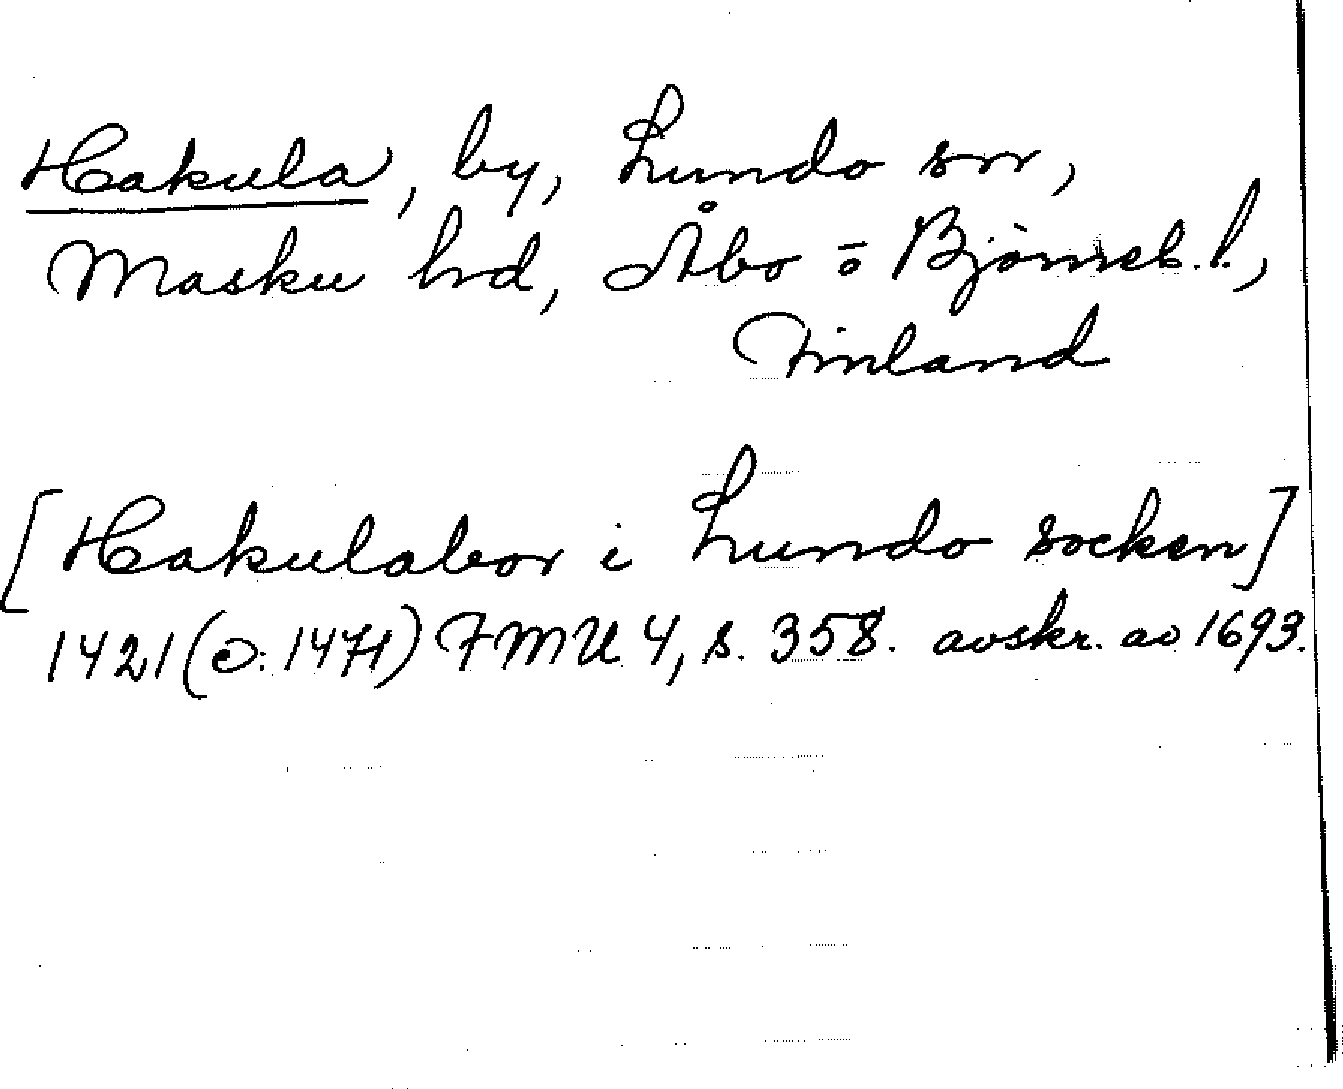 Hakula, by, Lundo sn,
Masku hd, Åbo o Björneb. l.,
Finland
[Hakulabor i Lundo socken]
1421 (o: 1471) FMU 4, s. 358. avskr. av 1693.